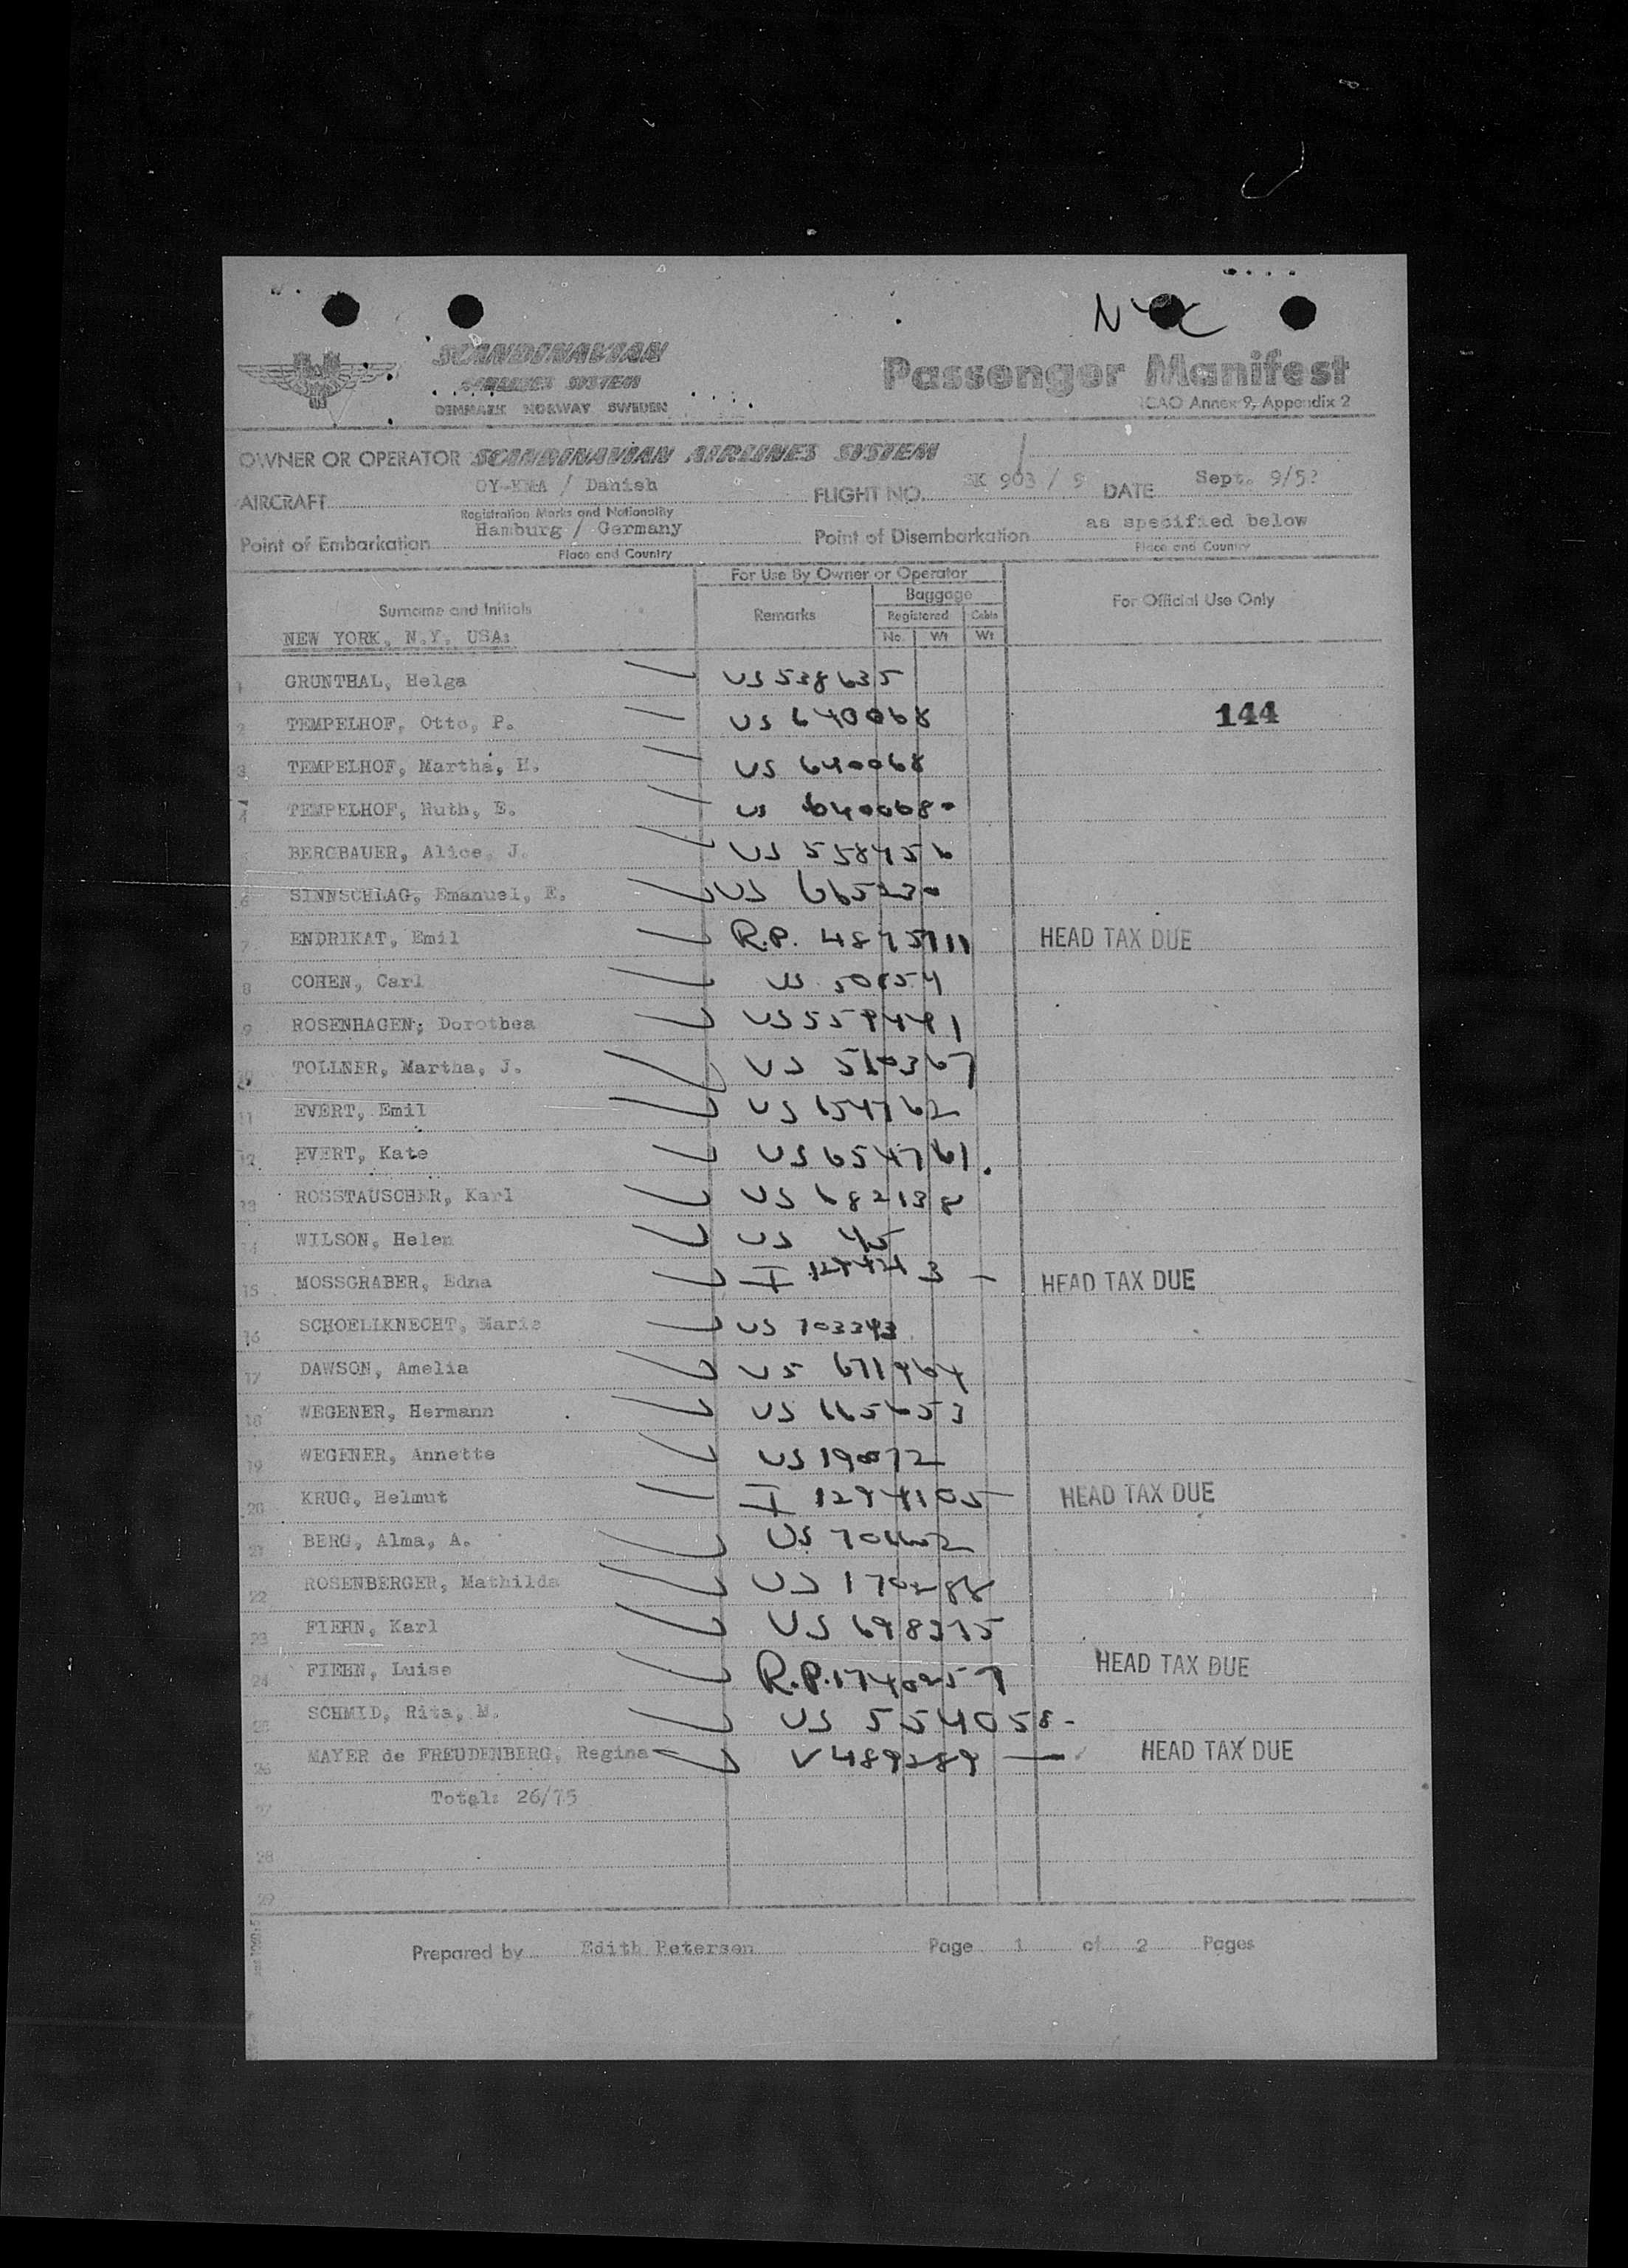 NYC
SCANDINAVIAN
AIRLINES SYSTEM
DENMARK NORWAY SWEDEN
Passenger Manifest
ICAO Annex 9, Appendix 2
OWNER OR OPERATOR SCANDINAVIAN AIRLINES SYSTEM
AIRCRAFT OY-KMA / Danish FLIGHT NO. SK 903 / 9 DATE Sept. 9/52
Registration Marks and Nationality
Point of Embarkation Hamburg / Germany Point of Disembarkation as specified below
Place and Country Place and Country
For Use By Owner or Operator
Surname and Initials Remarks Baggage For Official Use Only
Registered Cabin
No. Wt Wt
NEW YORK, N.Y. USA:
1 GRUNTHAL, Helga US 538635
2 TEMPELHOF, Otto, P. US 640068 144
3 TEMPELHOF, Martha, H. US 640068
4 TEMPELHOF, Ruth, E. US 640068
5 BERGBAUER, Alice, J. US 558456
6 SINNSCHLAG, Emanuel, E. US 665230
7 ENDRIKAT, Emil R.P. HEAD TAX DUE
8 COHEN, Carl US
9 ROSENHAGEN, Dorothea US 559491
10 TOLLNER, Martha, J. US 510367
11 EVERT, Emil US 654762
12 EVERT, Kate US 654761.
13 ROSSTAUSCHER, Karl US 682138
14 WILSON, Helen US 45
15 MOSSGRABER, Edna I HEAD TAX DUE
16 SCHOELLKNECHT, Marie US 703343
17 DAWSON, Amelia US 671964
18 WEGENER, Hermann US 665653
19 WEGENER, Annette US 190072
20 KRUG, Helmut I 1294105 HEAD TAX DUE
21 BERG, Alma, A. US
22 ROSENBERGER, Mathilda US 170288
23 FIEHN, Karl US 698375
24 FIEHN, Luise R.P. 1740257 HEAD TAX DUE
25 SCHMID, Rita, M. US 554058-
26 MAYER de FREUDENBERG, Regina V 489289 — HEAD TAX DUE
27 Total: 26/75
28
29
Prepared by Edith Petersen Page 1 of 2 Pages